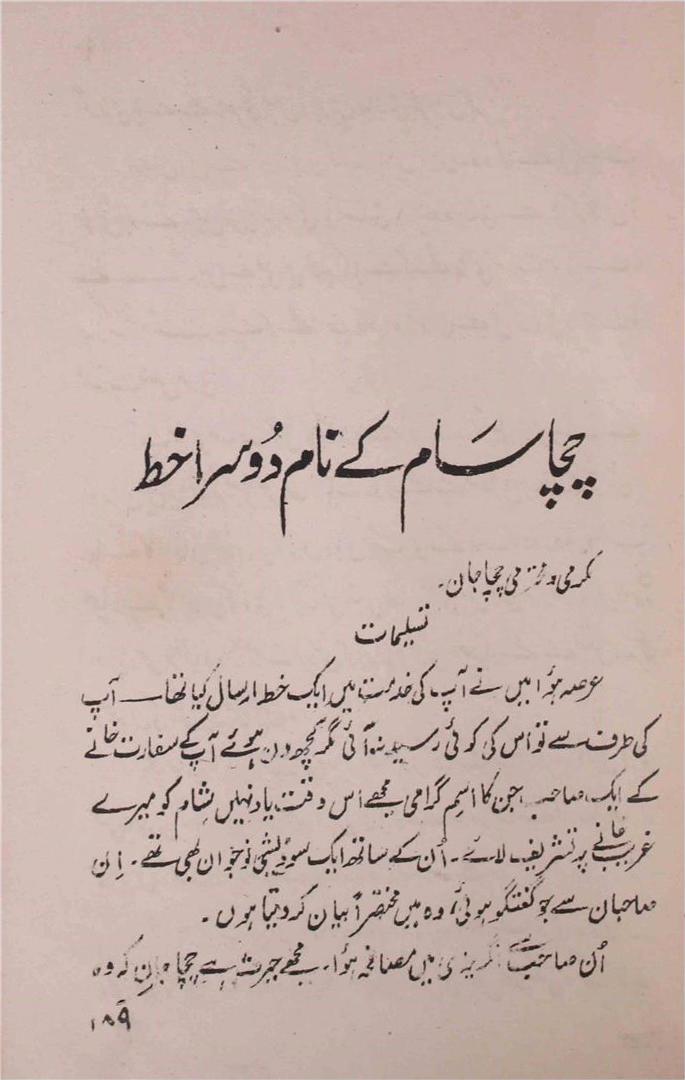 چچا سَام کے نام دُوسرا خط
مکرمی و محترمی چچا جان۔
تسلیمات
عرصہ ہؤا میں نے آپ کی خدمت میں ایک خط ارسال کیا تھا۔ آپ
کی طرف سے تو اس کی کوئی رسید نہ آئی مگر کچھ دن ہوئے آپ کے سفارت خانے
کے ایک صاحب جن کا اسمِ گرامی مجھے اس وقت یاد نہیں شام کو میرے
غریب خانے پر تشریف لائے۔ اُن کے ساتھ ایک سودیشی نوجوان بھی تھے۔ اِن
صاحبان سے جو گفتگو ہوئی، وہ میں مختصراً بیان کر دیتا ہوں۔
اُن صاحب سے انگریزی میں مصافحہ ہؤا۔ مجھے حیرت ہے چچا جان کہ وہ
۱۵۹